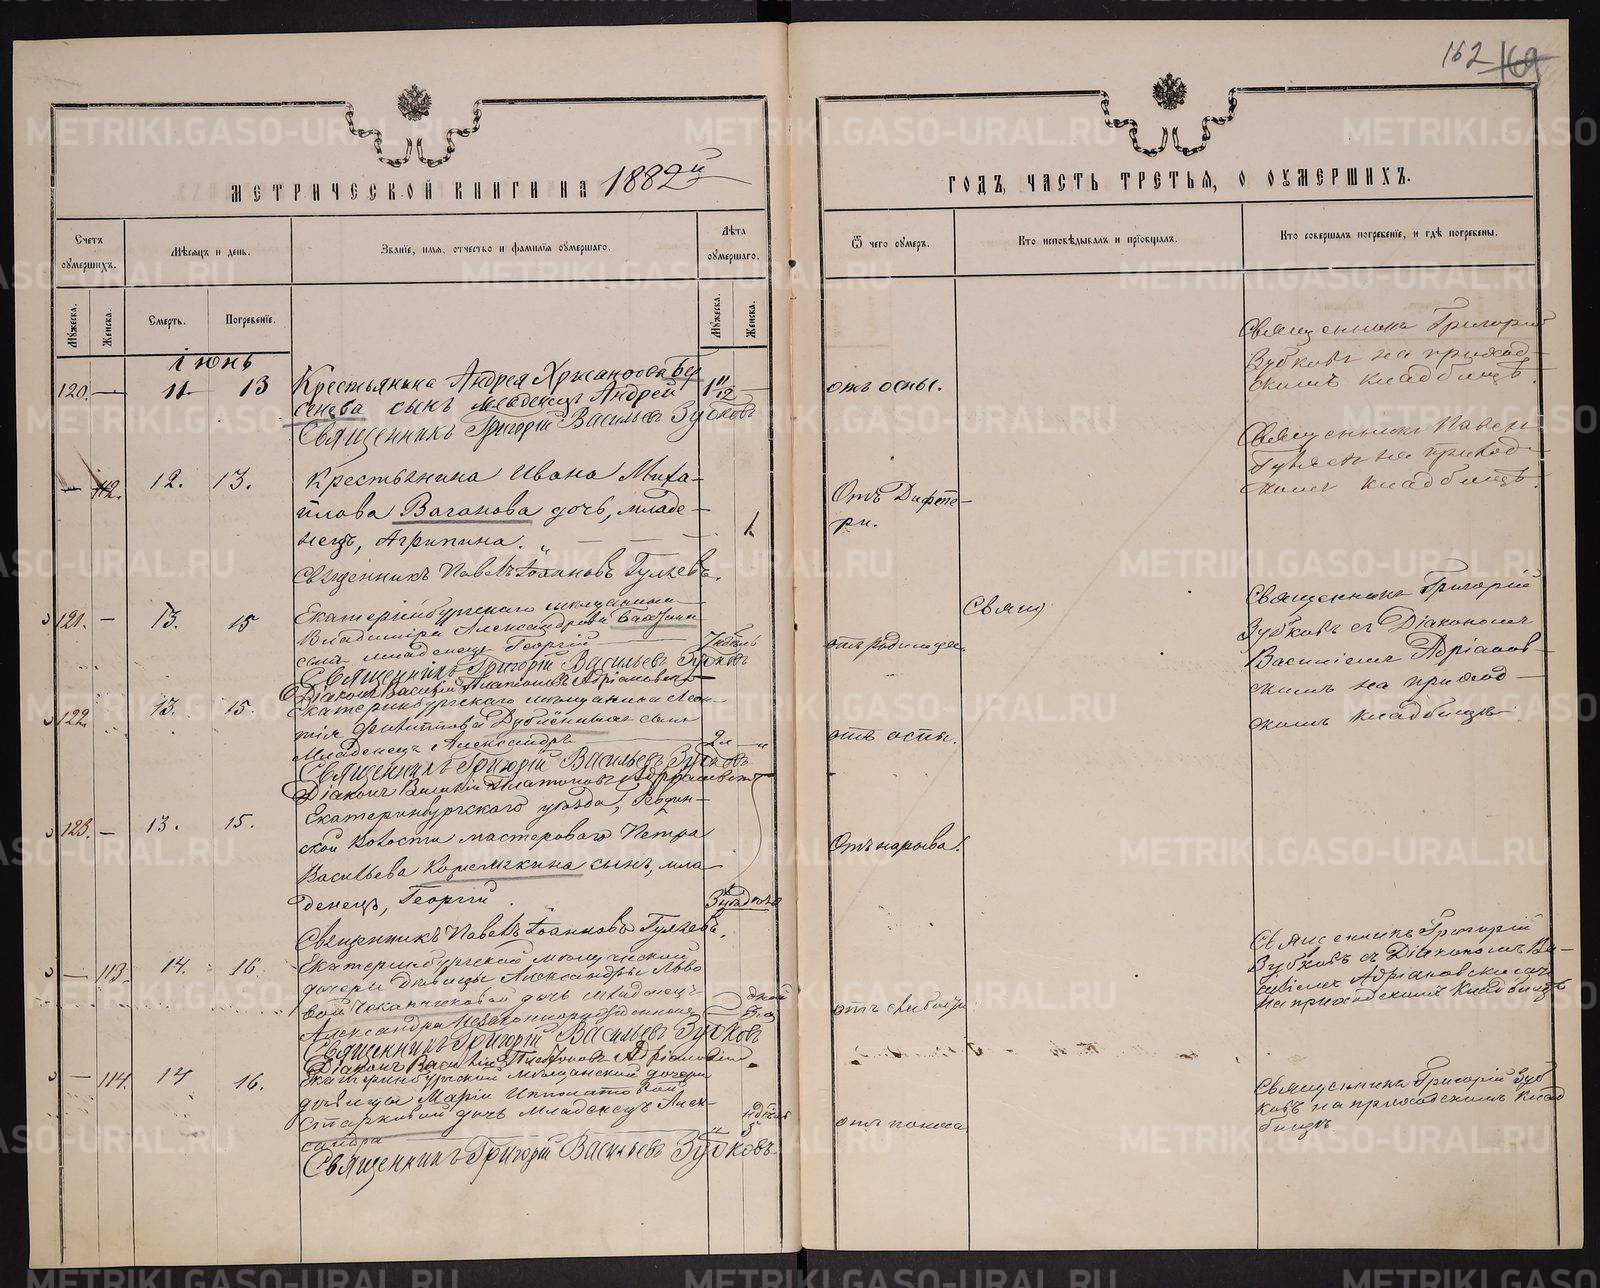 162 169
МЕТРИЧЕСКОЙ КНИГИ НА 1882й
ГОДЪ, ЧАСТЬ ТРЕТЬЯ, О ОУМЕРШИХЪ.
Счетъ оумершихъ.
Мѣсяцъ и день.
Званіе, имя, отчество и фамилія оумершаго.
Лѣта оумершаго.
Ѿ чего оумеръ.
Кто исповѣдывалъ и пріобщалъ.
Кто совершалъ погребеніе, и гдѣ погребены.
Мужеска.
Женска.
Смерть.
Погребеніе.
Мужеска.
Женска.
Іюнь
120. — 11 13
Крестьянина Андрея
сенева сынъ младенецъ Андрей
Священникъ Григорій Васильевъ Зубковъ
1 11/12 —
отъ оспы.
Священникъ Григорій
Зубковъ на приход-
скомъ кладбищѣ.
— 112. 12. 13.
Крестьянина Ивана Миха-
йлова Ваганова дочь, младе-
нецъ, Агрипина.
Священникъ Павелъ Іоанновъ Гуляевъ.
1
Отъ Дифте-
ри.
Священникъ Павелъ
Гуляевъ на приход-
скомъ кладбищѣ.
121. — 13. 15
Екатеринбургскаго мѣщанина
Владиміра Александрова
сынъ младенецъ Георгій
Священникъ Григорій Васильевъ Зубковъ
Діаконъ Василій Платоновъ Адріановскій
отъ родимца.
Свящ
Священникъ Григорій
Зубковъ съ Діакономъ
Василіемъ Адріанов-
скимъ на приход-
скомъ кладбищѣ
122. 13. 15.
Екатеринбургскаго мѣщанина Леон-
тія Филиппова сынъ
Младенецъ Александръ
Священникъ Григорій Васильевъ Зубковъ
Діаконъ Василій Платоновъ Адріановскій
2 "
отъ оспы.
123. — 13. 15.
Екатеринбургскаго уѣзда,
ской волости мастероваго Петра
Васильева Корешкина сынъ, мла
денецъ, Георгій.
Священникъ Павелъ Іоанновъ Гуляевъ.
Отъ нарыва.
— 113. 14. 16.
Екатеринбургской мѣщанской
дочери Дѣвицы Александры Льво
вой дочь младенецъ
Александра Незаконнорожденная
Священникъ Григорій Васильевъ Зубковъ
Діаконъ Василій Платоновъ Адріановскій
отъ слабости
Священникъ Григорій
Зубковъ съ Діакономъ Ва-
силіемъ Адріановскимъ
на приходскомъ кладбищѣ
— 114. 14 16.
Екатеринбургской мѣщанской дочери
дѣвицы Маріи Ипполитовой
Старковой дочь младенецъ Алек-
сандра
Священникъ Григорій Васильевъ Зубковъ.
отъ поноса
Священникъ Григорій Зуб
ковъ на приходскомъ клад
бищѣ